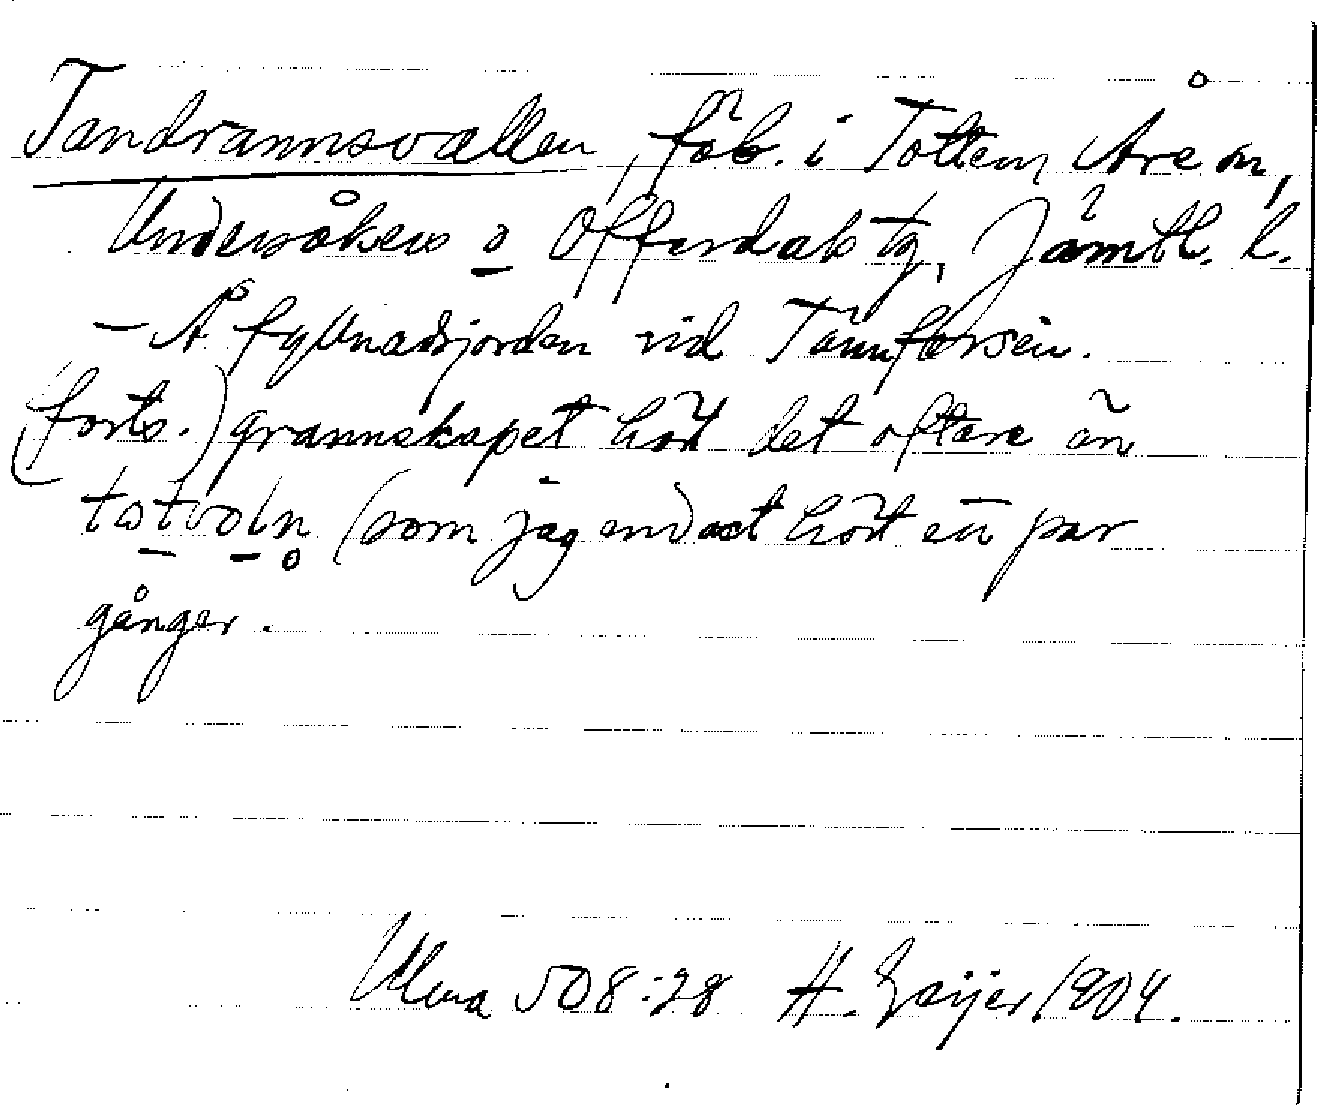 Tandrannsvallen, fäb. i Totten, Åre sn,
Undersåkers o Offerdals tg, Jämtl. l.
– Å fyllnadsjorden vid Tännforsen.
(forts.) grannskapet hört det oftare än
totvoln (som jag endast hört ett par
gånger.
Ulma 508:28 H. Geijer 1904.